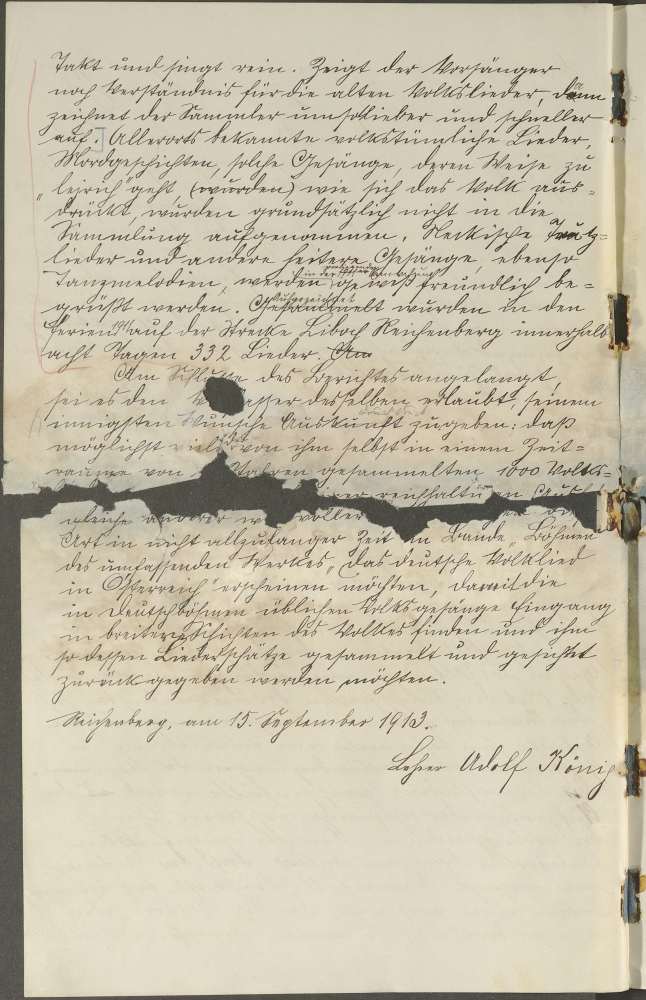 Takt und singt rein. Zeigt der Vorsänger
noch Verständnis für die alten Volkslieder, dann
zeichnet der Sammler umso lieber und schneller
auf. Allerorts bekannte volkstümliche Lieder,
Mordgeschichten, solche Gesänge, deren Weise zu
"leirich" geht (wurden) wie sich das Volk aus=
drückt, wurden grundsätzlich nicht in die
Sammlung aufgenommen. Neckische Trutz=
lieder und andere heitere Gesänge, ebenso
Tanzmelodien, werden gewiß freundlich be=
grüßt werden. Aufgezeichnet Gesammelt wurden in den
Ferien auf der Strecke Liboch Reichenberg innerhalb
acht Tagen 332 Lieder. Am
Am Schlusse des Berichtes angelangt,
sei es den Verfasser desselben erlaubt, seinem
innigsten Wunsche Auskunft zu geben: daß
möglichst viele von ihm selbst in einem Zeit=
raume von Jahren gesammelten 1000 Volks=
reichhaltigen
gleiche anderer wertvoller
Art in nicht allzulanger Zeit im Bande "Böhmen"
des umfassenden Werkes "das deutsche Volkslied
in Österreich" erscheinen möchten, damit die
in Deutschböhmen üblichen Volksgesänge Eingang
in breitere Schichten des Volkes finden und ihm
so dessen Liederschätze gesammelt und gesichtet
zurück gegeben werden möchten.
Reichenberg, am 15. September 1913.
Lehrer Adolf König